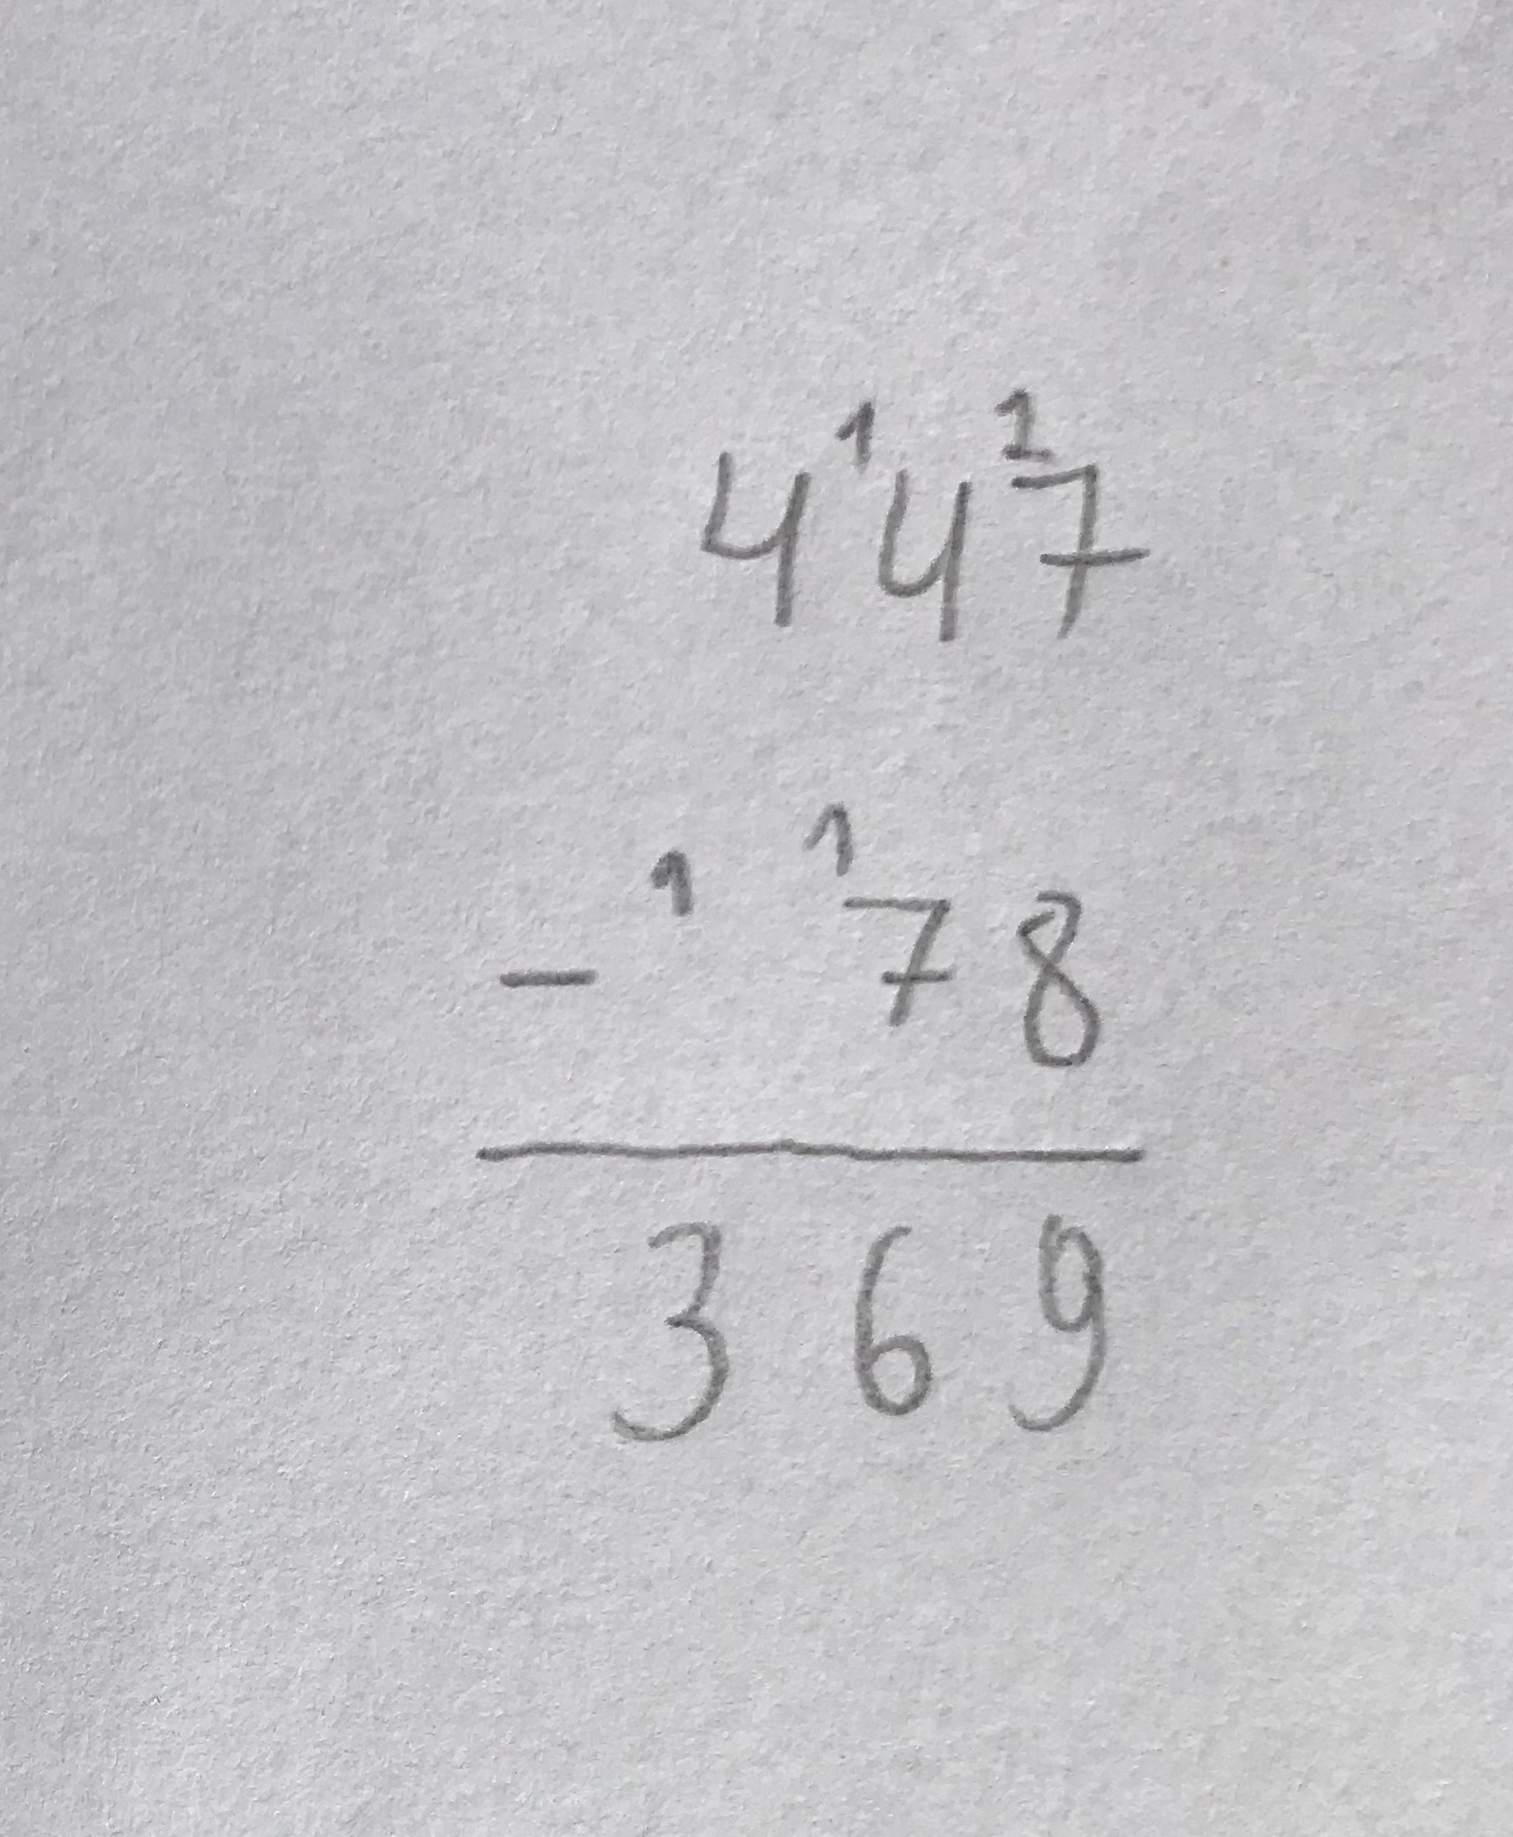 4¹4¹7
- ¹ ¹78
369